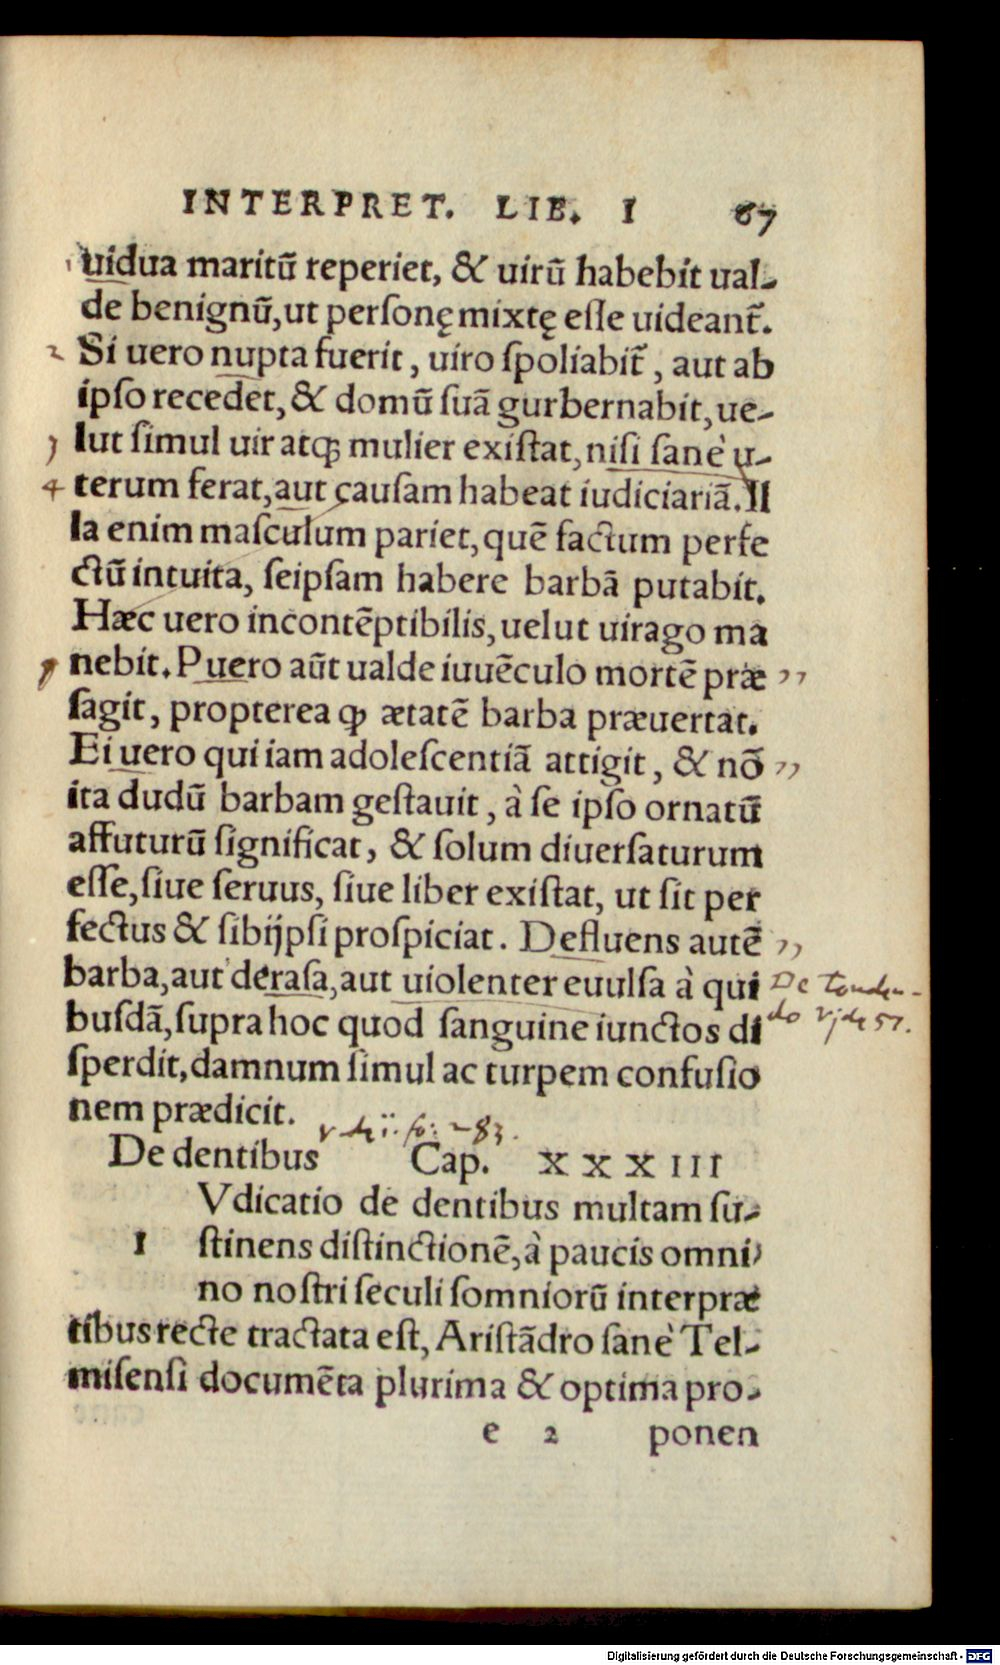 INTERPRET. LIB. I 67
uidua maritū reperiet, & uirū habebit ual-
de benignū, ut personę mixtę esse uideant᷉.
2 Si uero nupta fuerit, uiro spoliabit᷉, aut ab
ipso recedet, & domū suā gurbernabit, ue-
3 lut simul uir atqꝫ mulier existat, nisi sanè u-
4 terum ferat, aut causam habeat iudiciariā. Il
la enim masculum pariet, quē factum perfe
ctū intuita, seipsam habere barbā putabit.
Hæc uero incontēptibilis, uelut uirago ma
nebit. Puero aūt ualde iuuēculo mortē præ ,,
sagit, propterea ꝙ ætatē barba præuertat.
Ei uero qui iam adolescentiā attigit, & nō ,,
ita dudū barbam gestauit, à se ipso ornatū
affuturū significat, & solum diuersaturum
esse, siue seruus, siue liber existat, ut sit per
fectus & sibijpsi prospiciat. Defluens autē ,,
barba, aut derasa, aut uiolenter euulsa à qui
De tonden-
busdā, supra hoc quod sanguine iunctos di
do 57.
sperdit, damnum simul ac turpem confusio
nem prædicit.
fo: 283.
De dentibus Cap. XXXIII
Vdicatio de dentibus multam su-
I stinens distinctionē, à paucis omni
no nostri seculi somniorū interpræ
tibus recte tractata est, Aristādro sanè Tel-
misensi documēta plurima & optima pro-
e 2 ponen
Digitalisierung gefördert durch die Deutsche Forschungsgemeinschaft - DFG